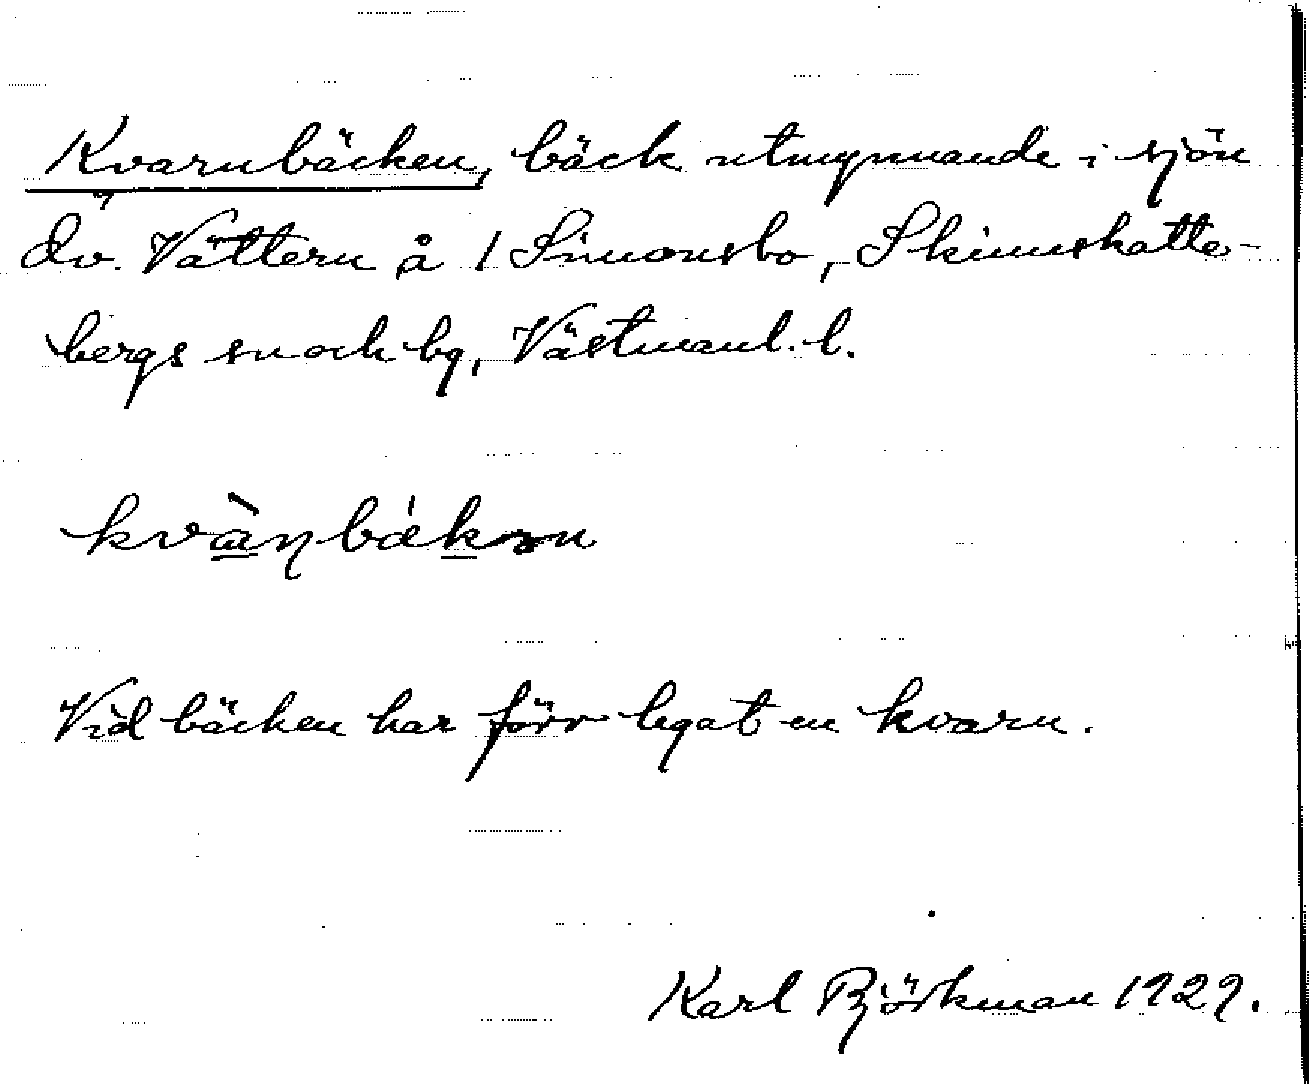 Kvarnbäcken, bäck utmynnande i sjön
Öv. Vättern å 1 Simonsbo, Skinnskatte-
bergs sn och bg, Västmanl. l.
kvànbäkən
Vid bäcken har förr legat en kvarn.
Karl Björkman 1929.